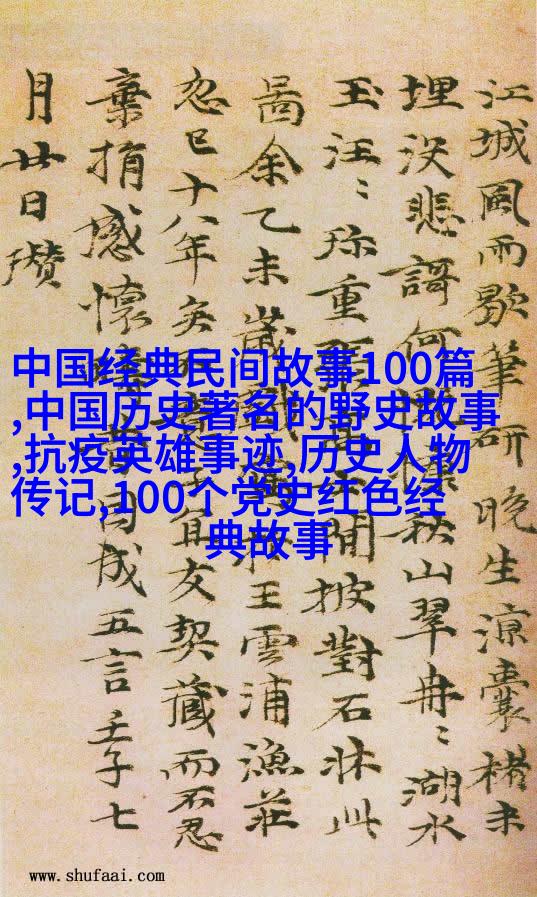 江城風雨歇筆研晚生涼囊楮未
埋沒悲謌何慷秋山翠冉〻湖水
玉汪〻珎重張士閒披對石牀此
啚余乙未歲戲於王雲浦漁莊
忽已十八年矣子宜友契藏而不忍
棄捐感懷因成五言壬子七
月廿日瓚
中国经典民间故事100篇
,中国历史著名的野史故事
,抗疫英雄事迹,历史人物
传记,100个党史红色经
典故事
www.shufaai.com